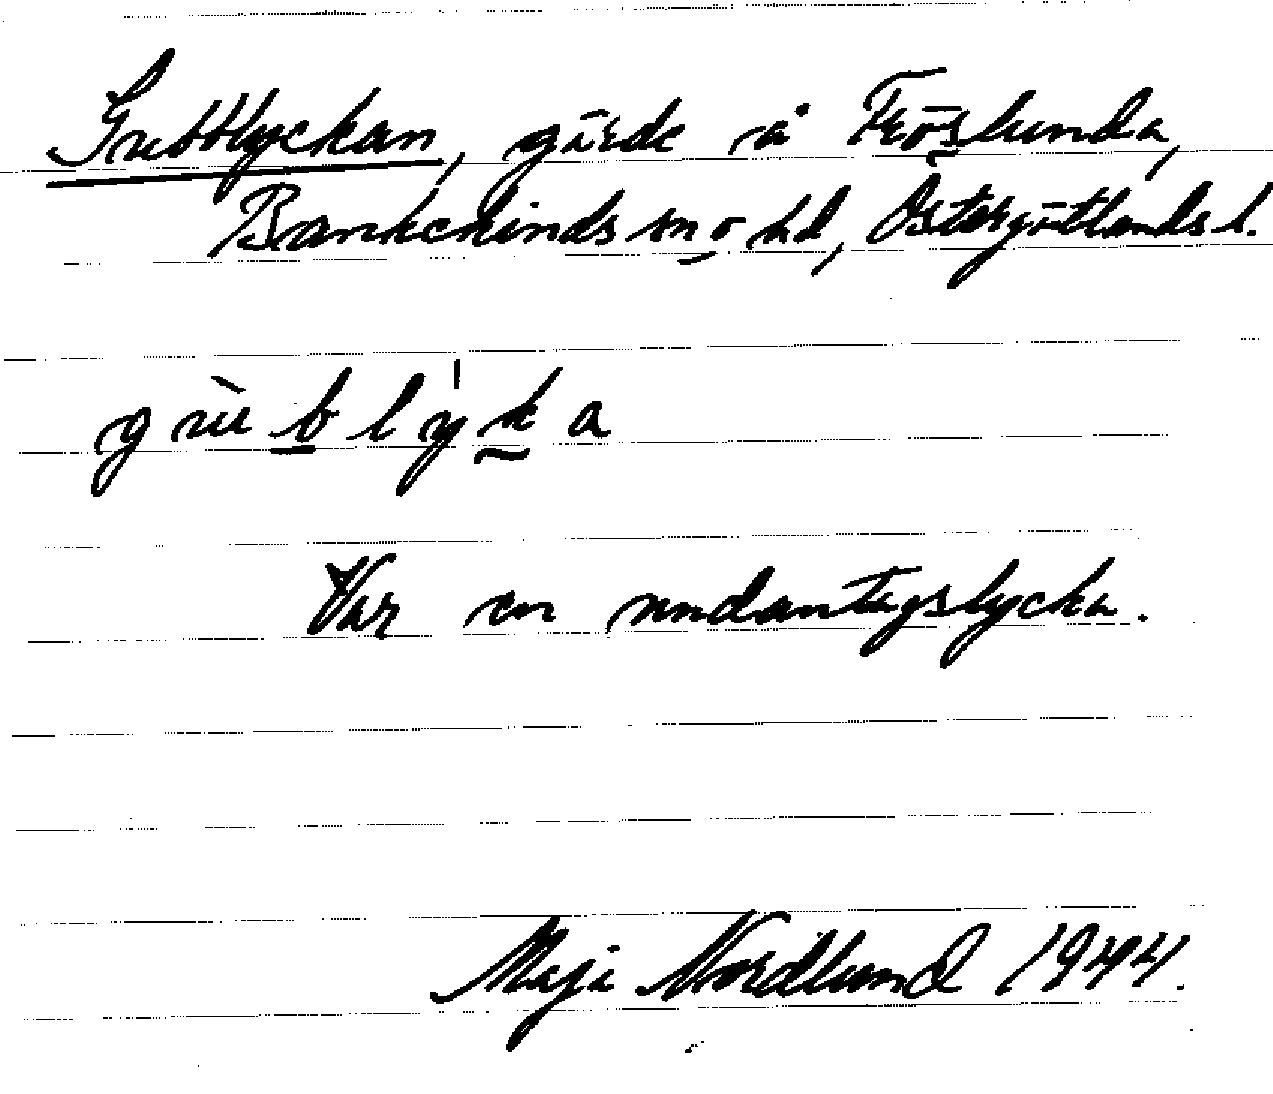 Grubblyckan, gärde å Fröslunda,
Bankekinds sn o hd, Östergötlands l.
Var en undantagslycka.
Maja Nordlund 1944.